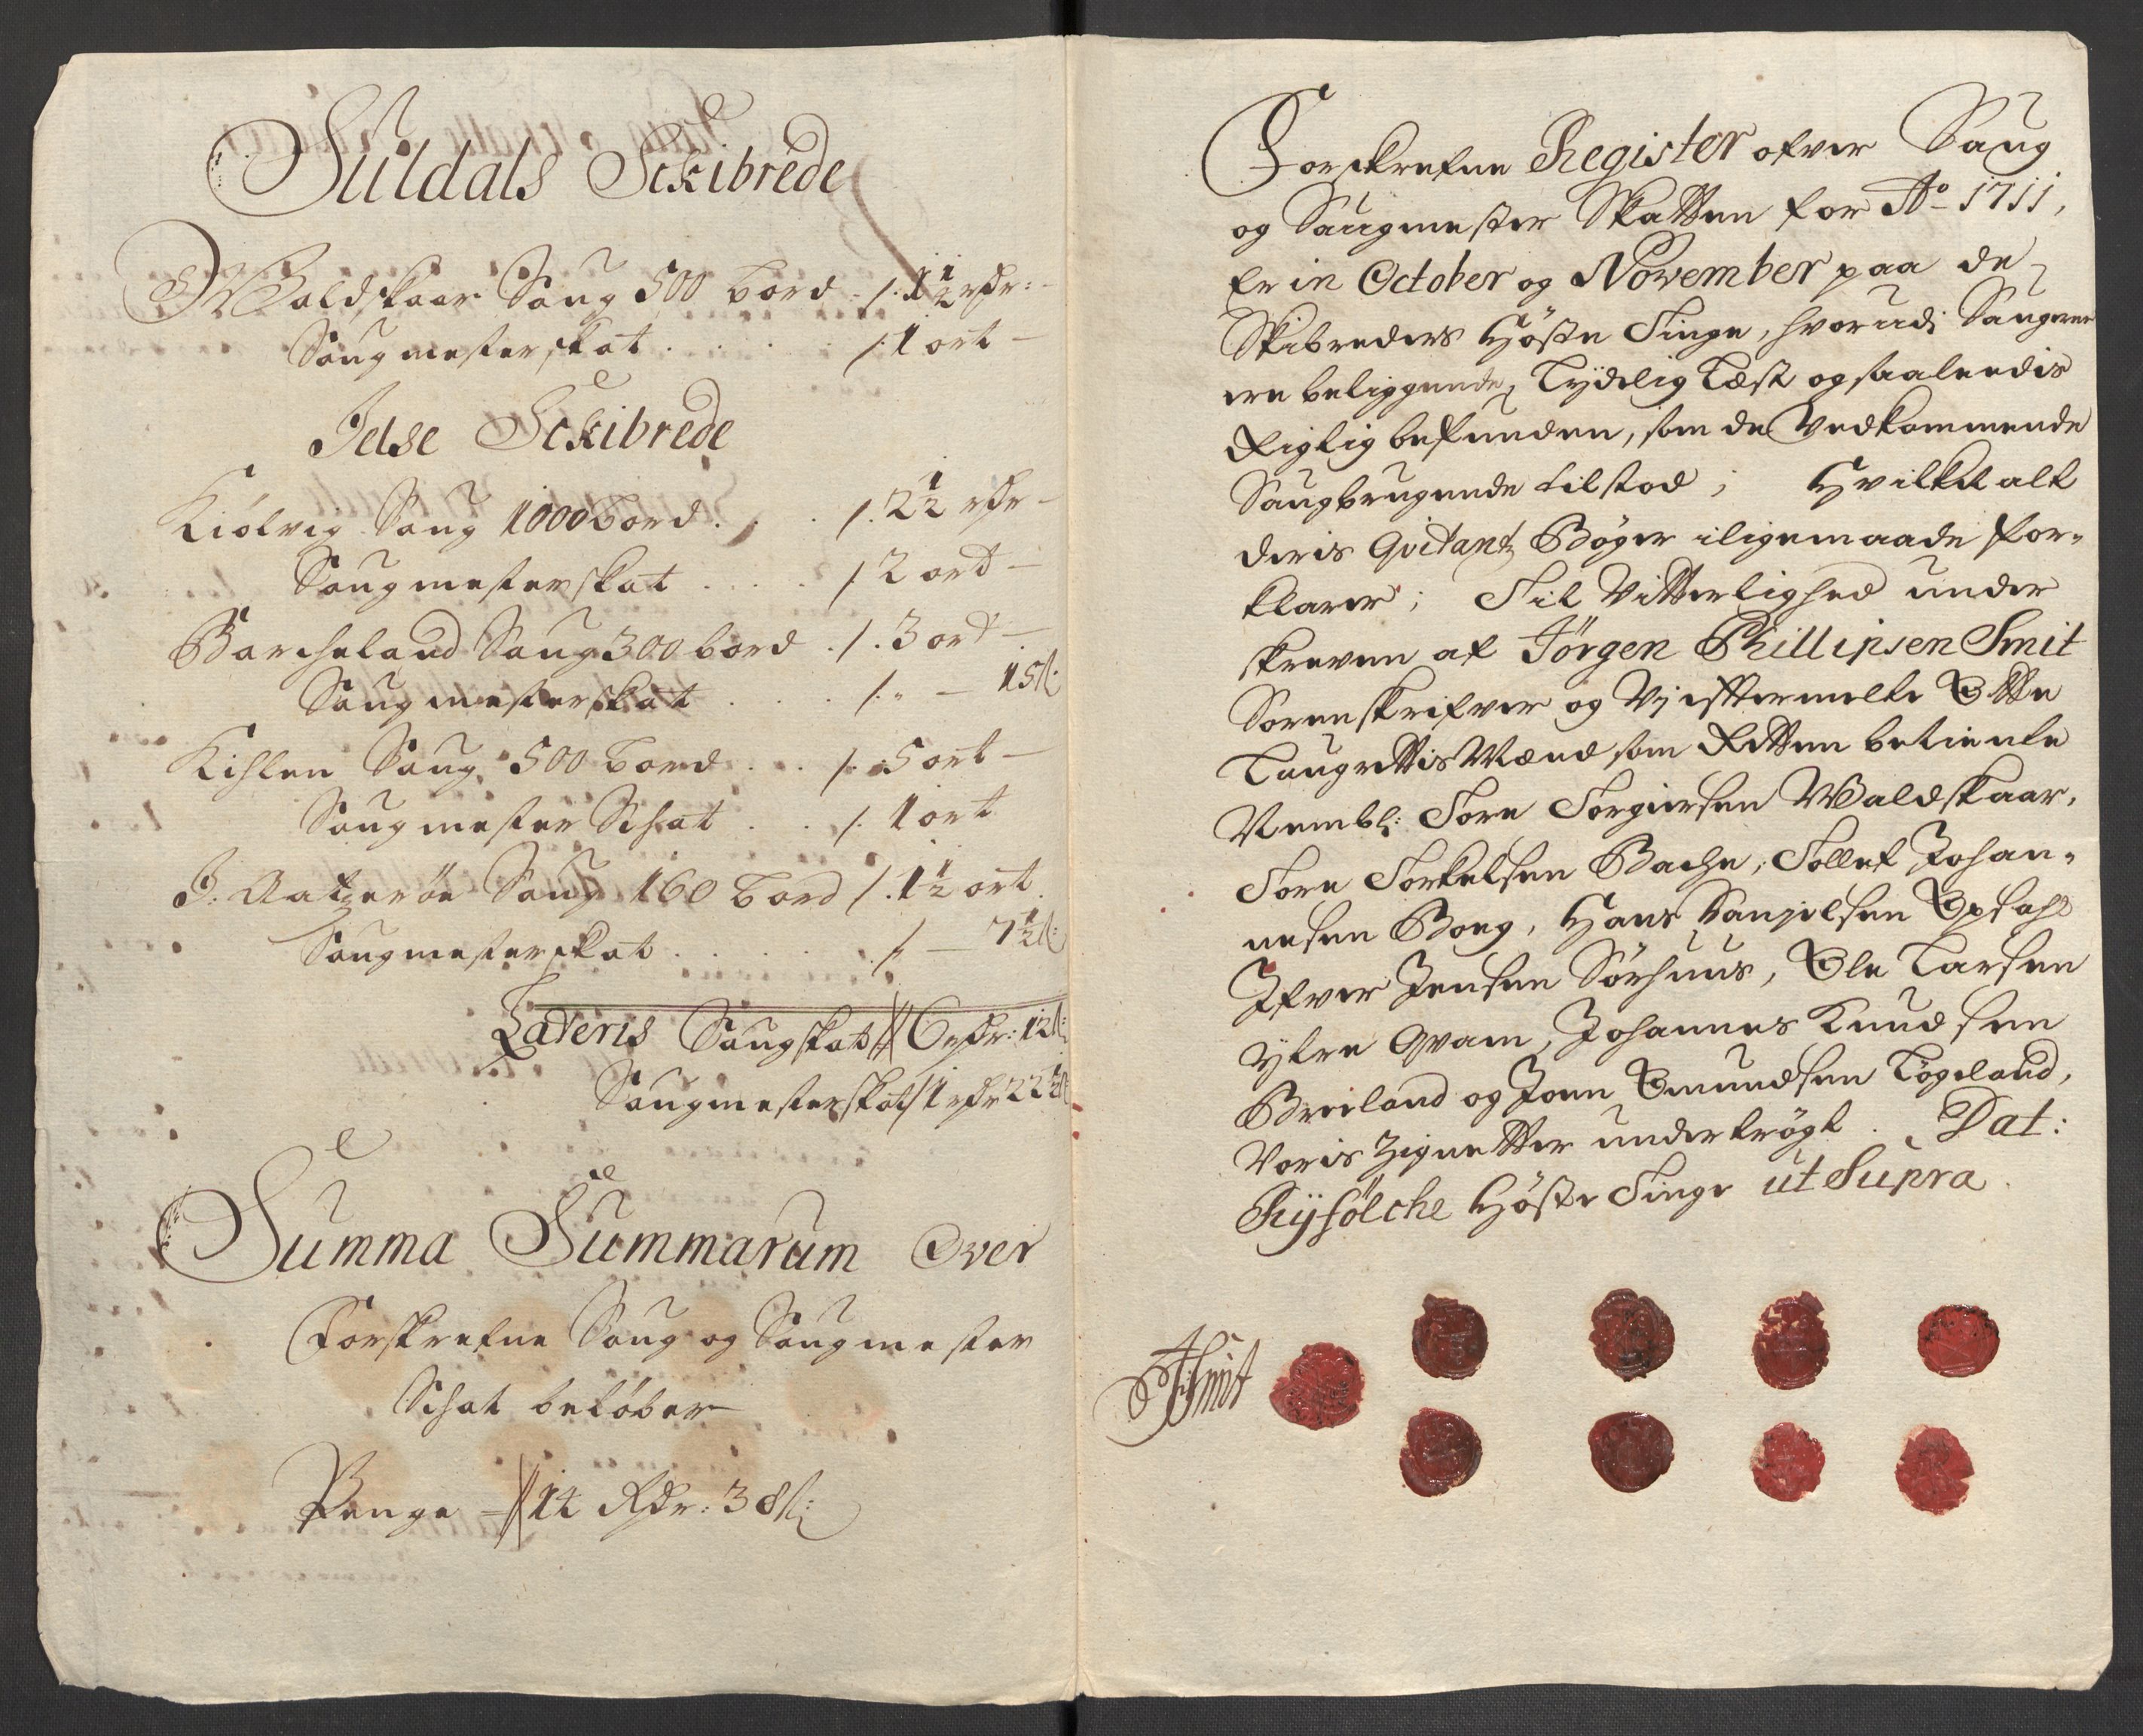 Suldals Sckibrede
Waldskaar Saug 500 bord /: 1½ rdr:
Saugmesterskat . . . . /: 1 ort -
Jelse Sckibrede
Kiølvig Saug 1000 bord . . . /. 2½ rdr -
Saugmesterskat . . . . /. 2 ort -
Barcheland Saug 300 bord . /. 3 ort -
Saugmesterskat . . . . /: " - 15 s:
Kihlen Saug 500 bord . . . /. 5 ort -
Saugmester Schat . . . /. 1 ort
J. Aatzerøe Saug 160 bord /. 1½ ort.
Saugmesterskat . . . . . /: - 7½ s:
Lateris Saugskat // 6 rdr: 12 s:
Saugmesterskat // 1 rdr 22½ s
Summa Summarum Over
Forskrefne Saug og Saugmester
Schat beløber
Penge = // 14 Rdr: 38 s:
Forskrefne Register ofver Saug
og Saugmester Skatten for Ao 1711,
Er in October og November paa de
Skibreders Høste Tinge, hvorudj Saugerne
ere beliggende, Tydelig Læst og saaleedis
Rigtig befunden, som de Vedkommende
Saugbrugende tilstod; Hvilket alt
deris Qvitantz Bøger iligemaade for-
klarer; Til Vitterlighed under
skreven af Jörgen Phillipsen Smit
Sorenskrifver og Vj efftermelte Otte
Laugrettis Mænd som Retten betiente
Nembl: Tore Torgiersen Waldskaar,
Tore Torkelsen Bache, Tollef Johan-
nesen Boeg, Hans Danjelsen Opsahl
Ifver Jensen Sørhuus, Ole Larsen
ytre Qvam, Johannes Knudsen
Breiland og Joen Omundsen Løgeland,
Voris Zignetter undertrøgt. Dat:
Ryfölche Høste Tinge ut Supra.
JPSmit